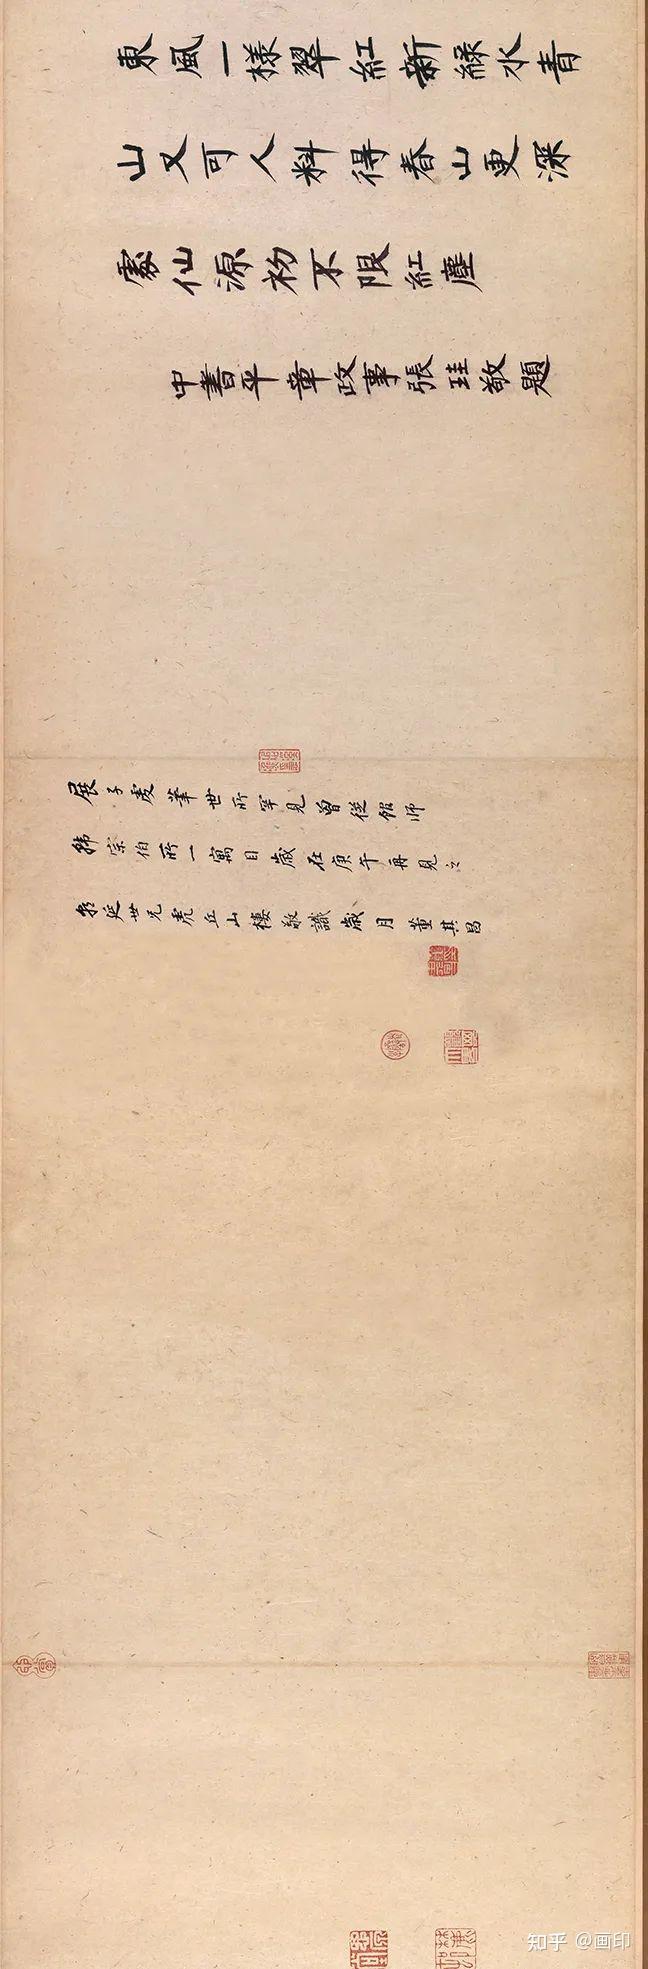 東風一樣翠紅新綠水青
山又可人料得春山更深
處仙源初不限紅塵
中書平章政事張珪敬題
展子虔筆世所罕見曾從館師
韓宗伯所一寓目歲在庚午再見之
延世兄虎丘山樓敬識歲月董其昌
知乎 @画印